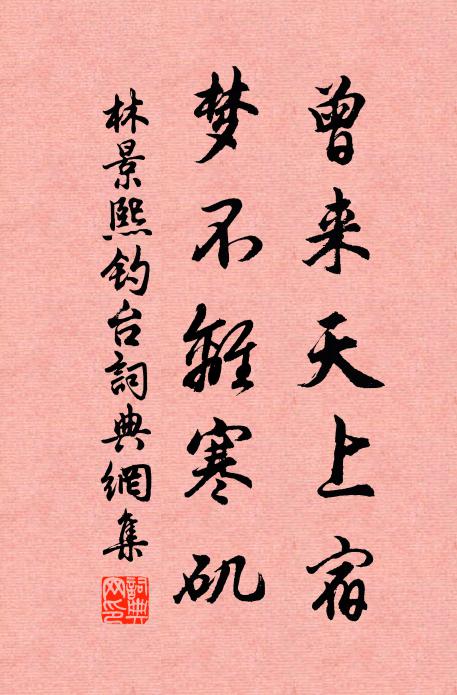 曾来天上宿
梦不離寒矶
林景熙釣台詞典網集
詞典网印